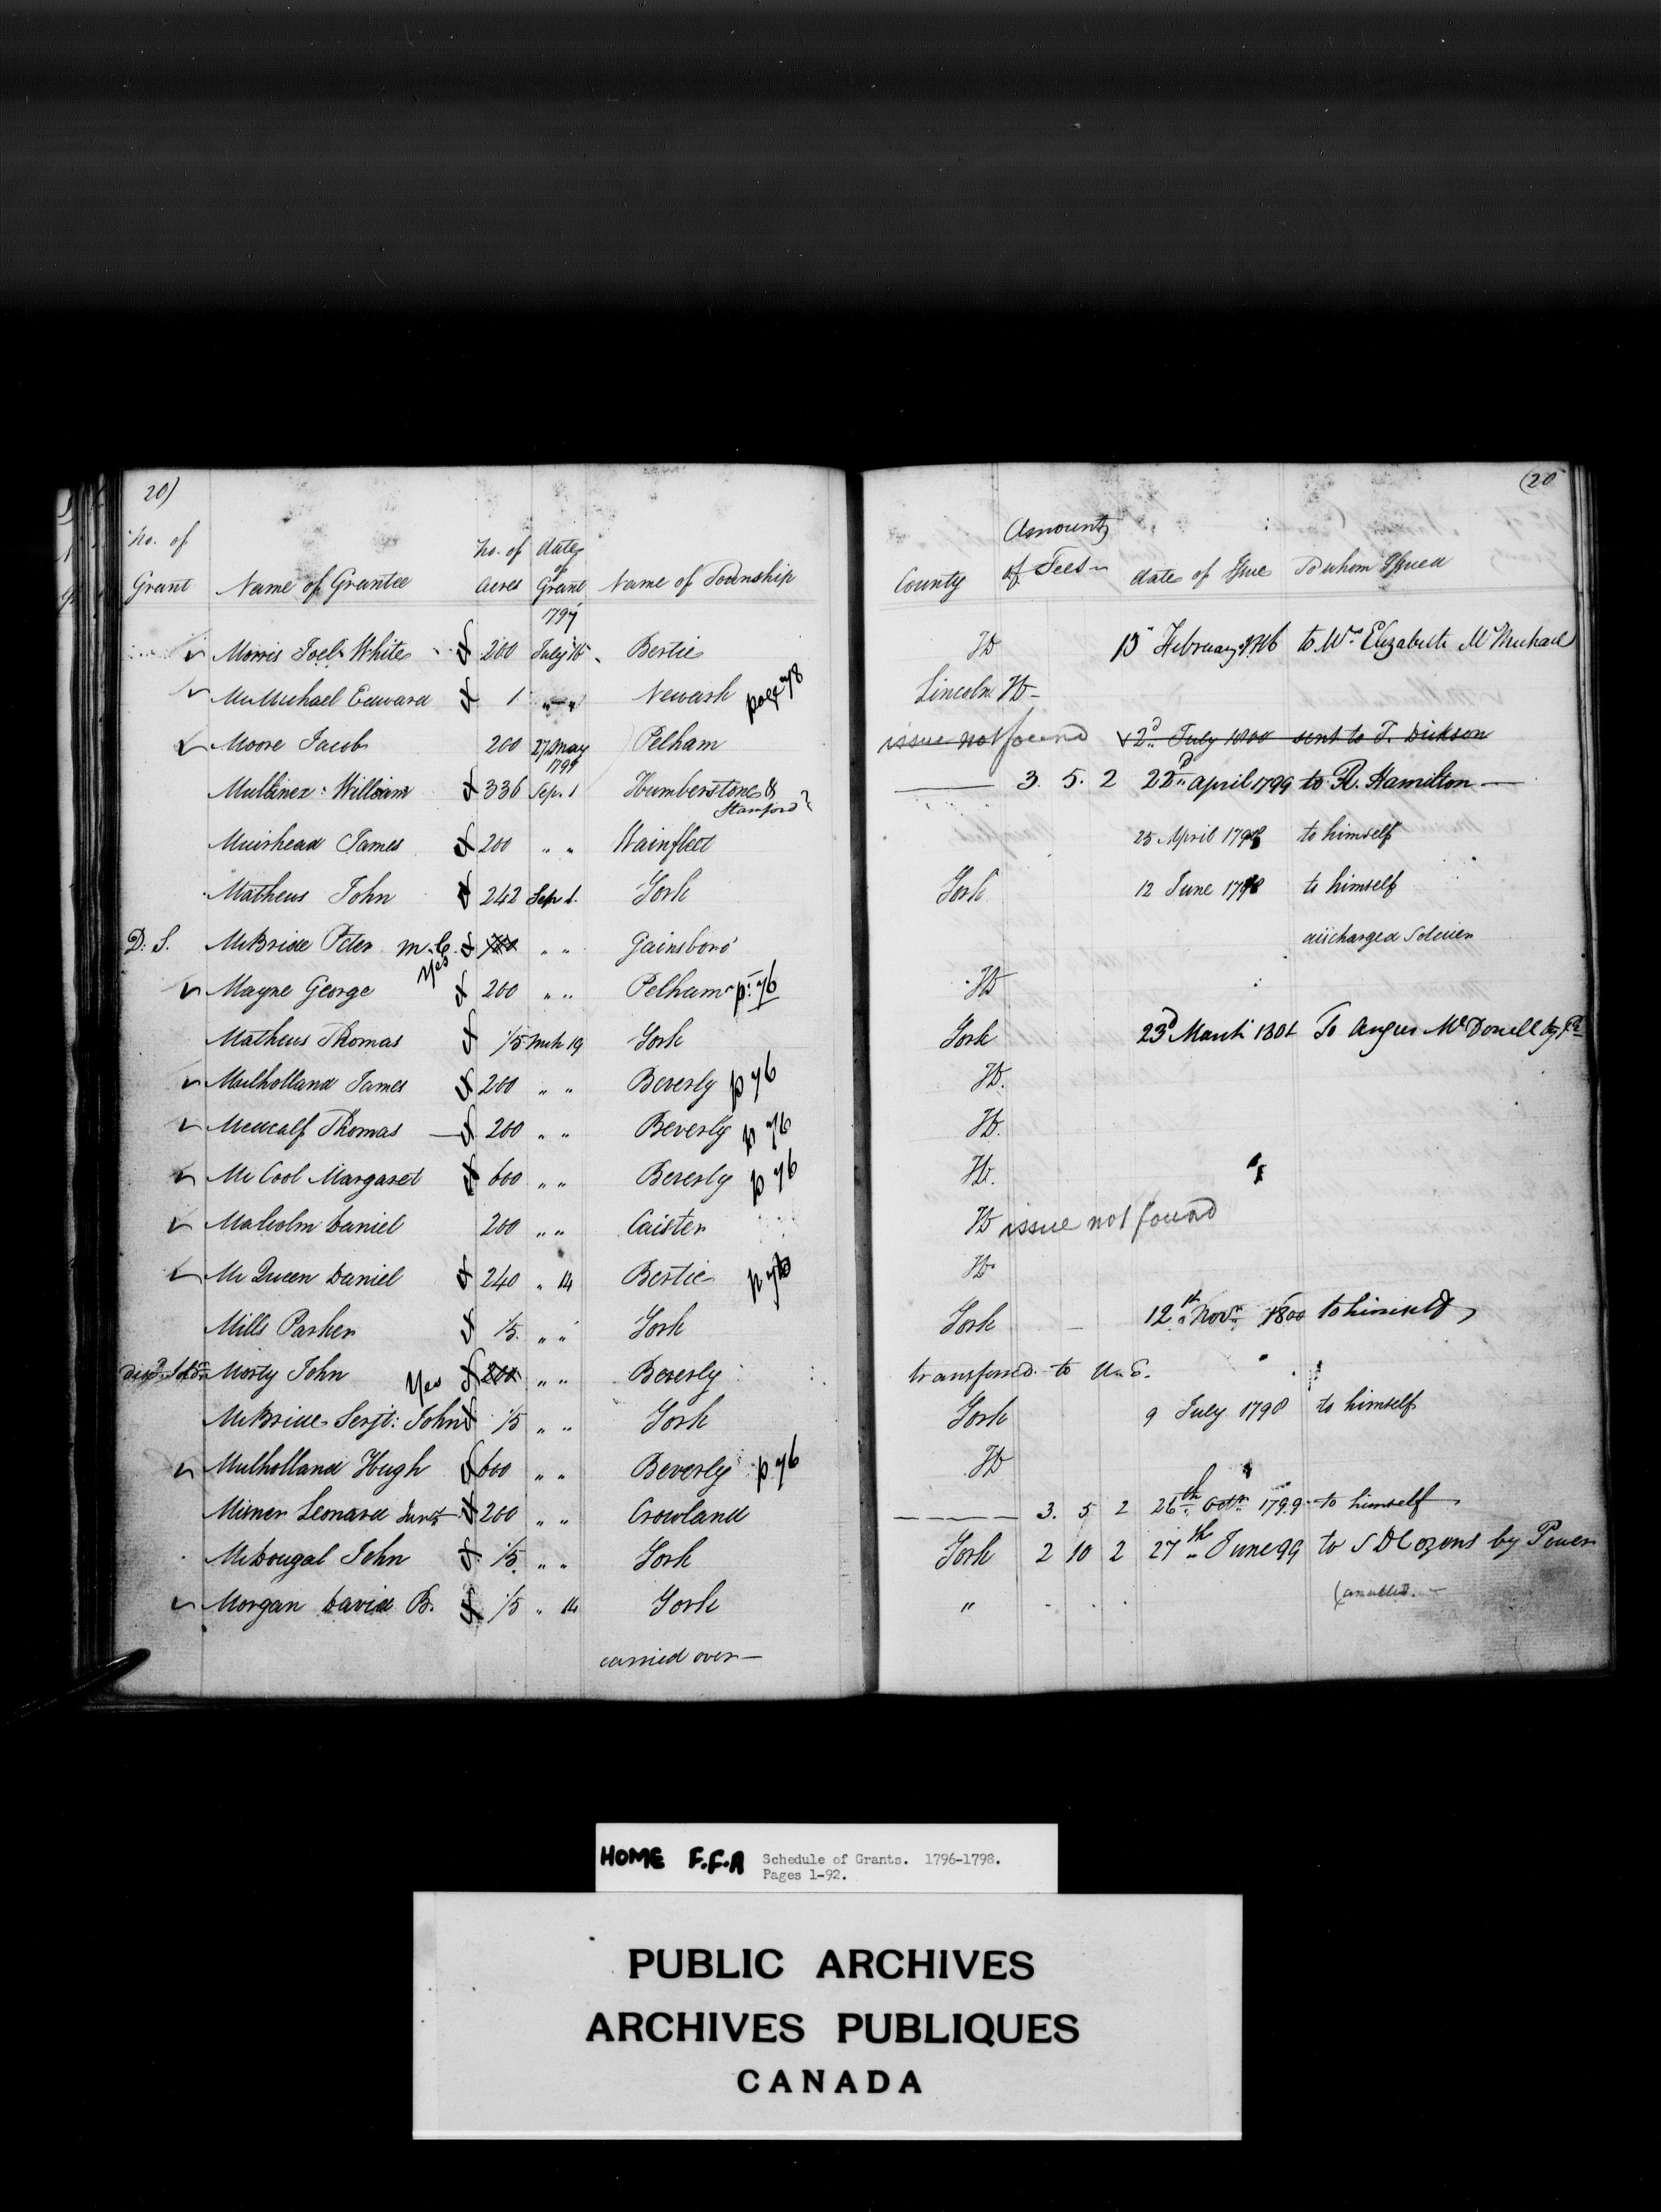 20)
(20
No. of Grant Name of Grantee No. of Acres date of Grant Name of Township County Amount of Fees date of Issue To whom Issued
1797
Morris Joel White 200 July 15 Bertie HD 13 February to Mrs Elizabeth McMichael
McMichael Edward 1 " " Newark page 78 Lincoln HD
Moore Jacob 200 27 May Pelham issue not found 2d July 1800 sent to T. Dickson
1797
Mullinex William 336 Sep. 1 Humberstone & Stamford? 3. 5. 2 22d April 1799 to R. Hamilton
Muirhead James 200 " " Wainfleet 25 April 1798 to himself
Matheus John 242 Sep 1. York York 12 June 1798 to himself
D. S. McBride Peter M.C. Yes " " Gainsboro' discharged Soldier
Mayne George 200 " " Pelham p. 76 HD
Matheus Thomas 1/5 Mch 19 York York 23d March 1801 To Angus McDonell by
Mulholland James 200 " " Beverly p 76 HD.
Medcalf Thomas 200 " " Beverly p 76 HD.
McCool Margaret 600 " " Beverly p 76 HD.
Malcolm Daniel 200 " " Caister HD issue not found
McQueen Daniel 240 " 14 Bertie p 76 HD
Mills Parker 1/5 " " York York 12th Novr 1800 to himself
Morty John Yes 200 " " Beverly transferred to U.E.
McBride Serjt: John 1/5 " " York York 9 July 1798 to himself
Mulholland Hugh 600 " " Beverly p. 76 HD
Misner Leonard Junr 200 " " Crowland 3. 5 2 26th Octr 1799 to himself
McDougal John 1/5 " " York York 2 10 2 27th June 99 to S D Cozens by Power
Morgan David B. 1/5 " 14 York " Cancelled
carried over
HOME F.F.A Schedule of Grants. 1796-1798.
Pages 1-92.
PUBLIC ARCHIVES
ARCHIVES PUBLIQUES
CANADA